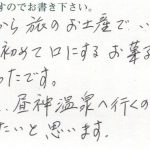 すのでお書き下さい。
から旅のお土産でい
初めて口にするお菓
ったです。
昼神温泉へ行くの
たいと思います。